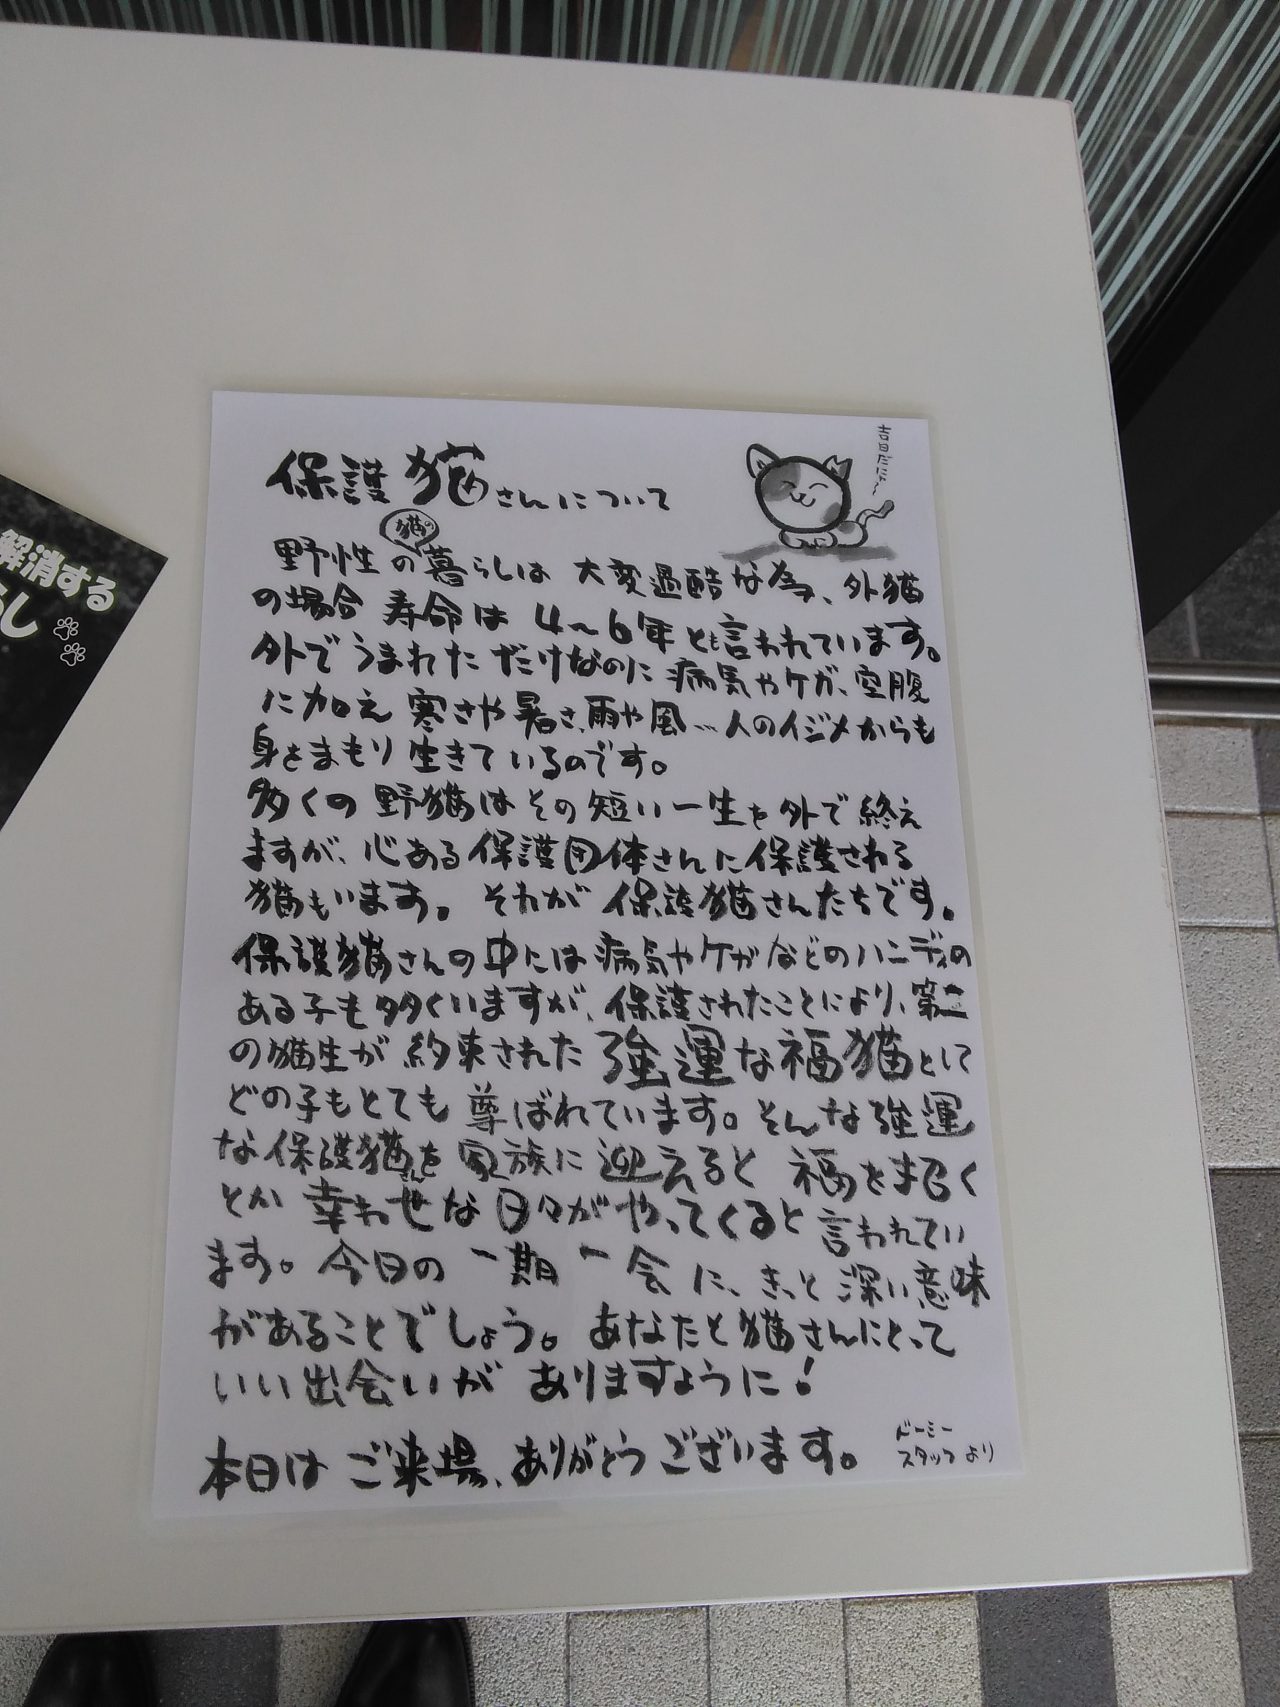 吉日だにゃ〜
保護猫さんについて
猫の
野性の暮らしは 大変過酷な為、外猫
の場合 寿命は 4〜6年とも言われています。
外でうまれただけなのに 病気やケガ、空腹
に加え 寒さや暑さ、雨や風…人のイジメからも
身をまもり 生きているのです。
多くの野猫はその短い一生を外で終え
ますが、心ある保護団体さんに保護される
猫もいます。それが保護猫さんたちです。
保護猫さんの中には病気やケガなどのハンディの
ある子も多くいますが、保護されたことにより、第二
の猫生が約束された強運な福猫として
どの子もとても尊ばれています。そんな強運
な保護猫さんを家族に迎えると 福を招く
とか 幸わせな日々がやってくると言われてい
ます。今日の一期一会に、きっと深い意味
があることでしょう。あなたと猫さんにとって
いい出会いがありますように!
本日はご来場、ありがとうございます。
ドーミー
スタッフより
解消する
らし